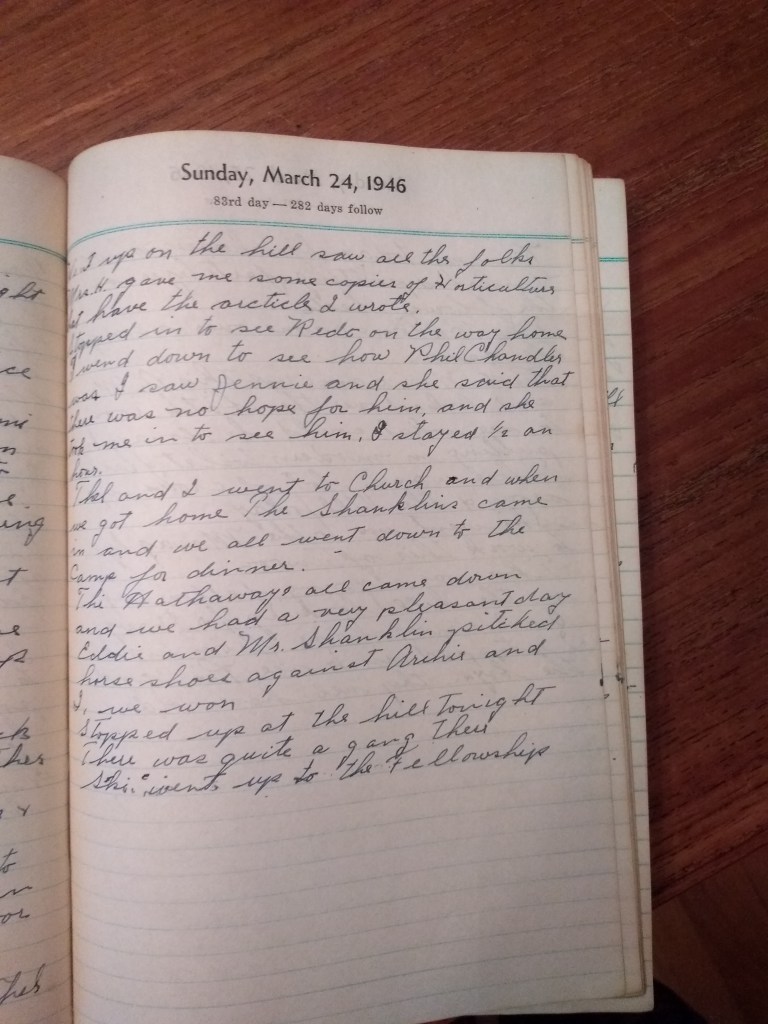 Sunday, March 24, 1946
83rd day — 282 days follow
I up on the hill saw all the folks
Mrs. H. gave me some copies of Horticulture
have the arcticle I wrote.
stopped in to see Redo on the way home
I wend down to see how Phil Chandler
was I saw Jennie and she said that
there was no hope for him, and she
took me in to see him. I stayed ½ an
hour.
and I went to Church and when
we got home The Shanklins came
in and we all went down to the
Camp for dinner.
The Hathaways all came down
and we had a very pleasant day
Eddie and Mr. Shanklin pitched
horse shoes against Archie and
I, we won
Stopped up at the hill tonight
There was quite a gang their
went up to the Fellowship